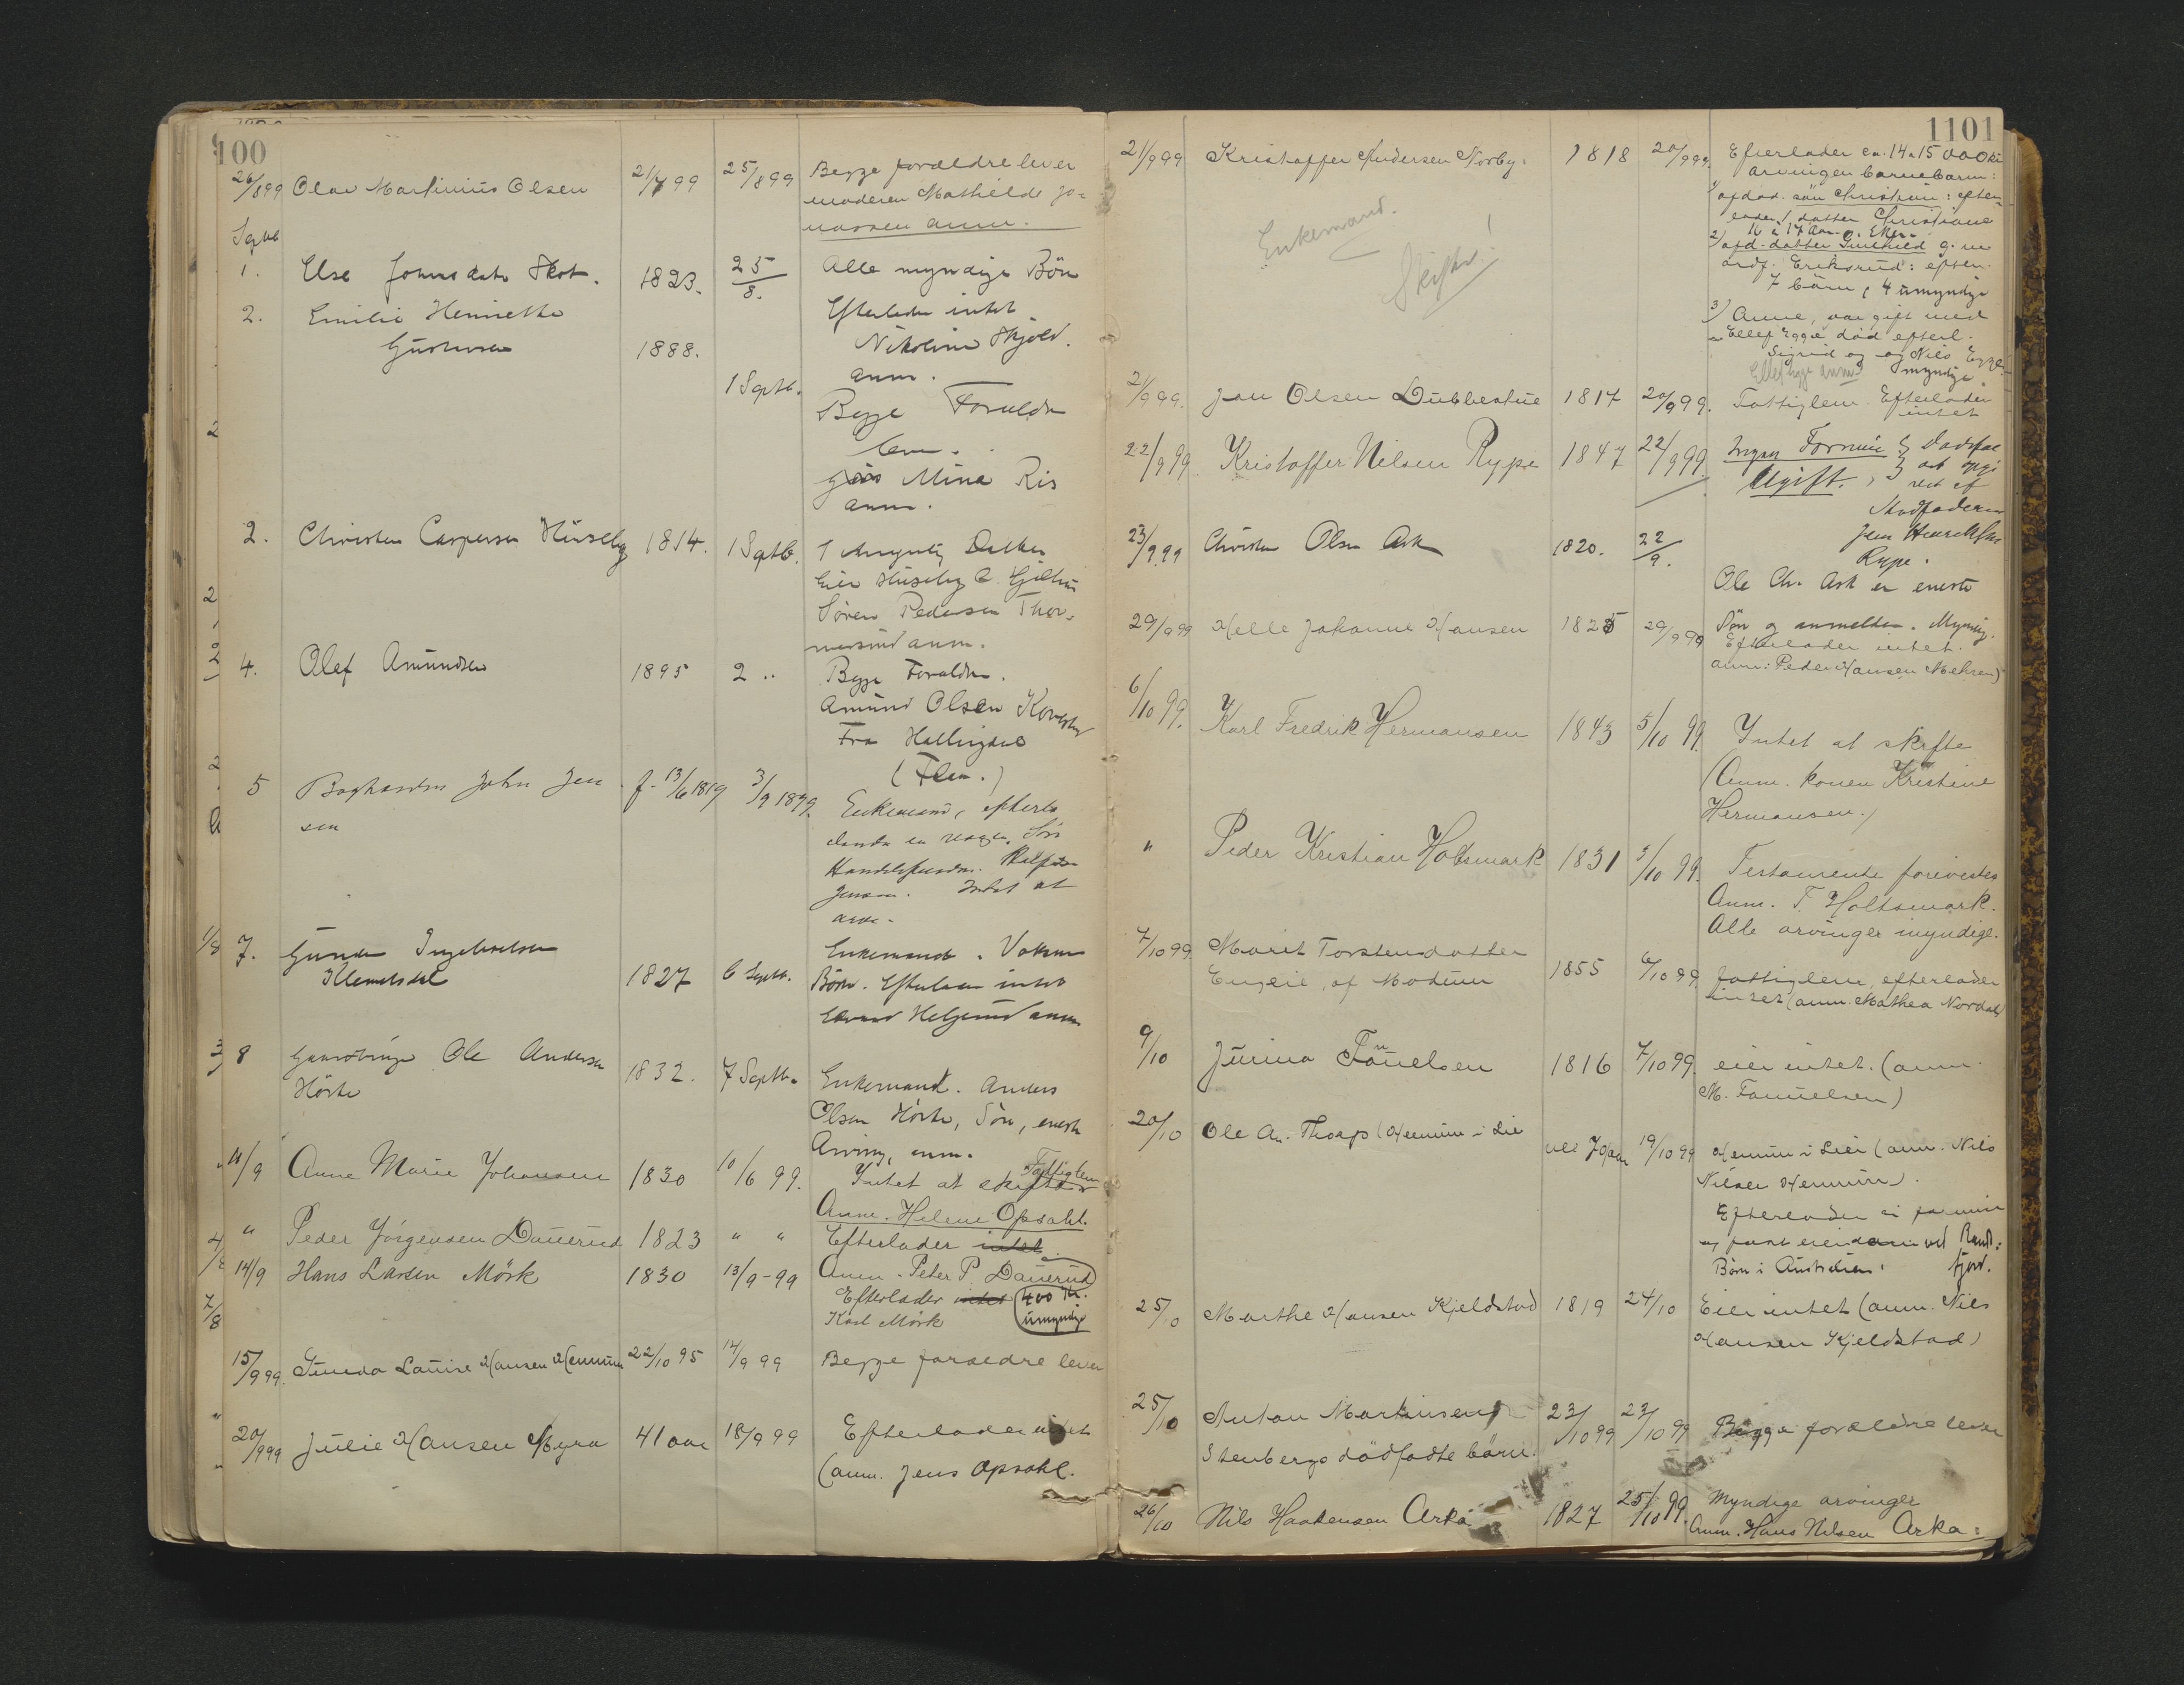 100
26/8 99 Olav Martinius Olsen 21/7 99 25/8 99 Begge forældre lever
moderen Mathilde Jo-
nassen anm.
Septb
1. Else Johnsdatr Skot. 1823. 25/8. Alle myndige Børn
Efterlader intet
Nikoline Skjold.
anm.
2. Emilie Henriette
Gustavsen 1888. 1 Septb. Begge Forældre
leve.
Mina Ris
anm.
2. Christen Caspersen Huseby 1814. 1 Septb. 1 Datter
Eier Huseby
Søren Pedersen Thor-
anm.
4. Olef Amundsen 1895 2 " Begge Forældre.
Amund Olsen
Fra Hallingdal
(Flem.)
5 John Jen
sen f. 13/6 1819 3/9 1899. Enkemand, efterla
en Søn
Intet at
arve.
7. Gunder Ingebretsen
Klemetsdal 1827 6 Septb. Enkemand. Voksne
Børn. Efterlader intet
Helgerud anm
8 Gaardbruger Ole Andersen
Hörte 1832. 7 Septb. Enkemand. Anders
Olsen Hörte, Søn, eneste
Arving, anm.
11/9 Anne Marie Johansen 1830 10/6 99. Intet at skifte Fattiglem
Anm. Helene Opsahl.
" Peder Jörgensen Dauerud 1823 " " Efterlader intet.
Anm. Peter P. Dauerud
14/9 Hans Larsen Mörk 1830 13/9-99 Efterlader intet 400 Kr.
Karl Mörk umyndige
15/9 99. Gunda Louise Hansen Hennum 22/10 95 14/9 99 Begge forældre lever
20/9 99 Julie Hansen Myra 41 aar 18/9 99 Efterlader intet
(anm. Jens Opsahl.
1101
21/9 99 Kristoffer Andersen Norby. 1818 20/9 99. Efterlader ca. 14 a 15 000 kr
Enkemand.
Skifte!
arvingen barnebarn:
1) afdød. søn Christian: efter-
lader 1 datter Christiane
16 a 17 Aar. g. Eker.
2) afd. datter Gunhild g. m
Eriksrud: efter.
7 börn, 4 umyndige
3) Anne, var gift med
Ellef Egge død efterl.
Sigrid og Nils Egge
Ellef Egge anm. myndige.
21/9 99. Jon Olsen Dubbestue 1817 20/9 99. Fattiglem. Efterlader
intet
22/9 99 Kristoffer Nilsen Rype 1847 22/9 99 Ingen Formue
Ugift. Dødsfal
at opgi
vet af
Stedfaderen
Jens Henriksen
Rype.
23/9 99 Christen Olsen Ask 1820. 22/9. Ole Chr. Ask er eneste
Søn og anmelder. Myndig.
29/9 99 Helle Johanne Hansen 1825 29/9 99 Efterlader intet.
anm: Peder Hansen Mehren)
6/10 99. Karl Fredrik Hermansen 1843 5/10 99. Intet at skifte
(Anm. konen Kristine
Hermansen.)
" Peder Kristian Holtsmark 1831 5/10 99. Testamente forevistes
Anm. T. Holtsmark.
Alle arvinger myndige.
7/10 99 Marit Torstensdatter
Engeie, af Modum 1855 6/10 99 fattiglem, efterlader
intet (anm. Mathea Nordal)
9/10 Jurina Fanuelsen 1816 7/10 99. eier intet. (anm.
M. Fanuelsen)
20/10 Ole A. Thorp (Hennum i Lie 70 aar 19/10 99 Hennum i Lier (anm. Nils
Nilsen Hennum).
Efterlader ei formue
og fast eiendom ved Rands-
Børn i Australien. fjord.
25/10 Marthe Hansen Kjeldstad 1819 24/10 Eier intet (anm. Nils
Hansen Kjeldstad)
25/10 Anton Martinsen
Stenbergs dödfödte barn. 23/10 99 23/10 99 Begge forældre lever
26/10 Nils Haakensen Arka 1827 25/10 99. Myndige arvinger
Anm. Hans Nilsen Arka: